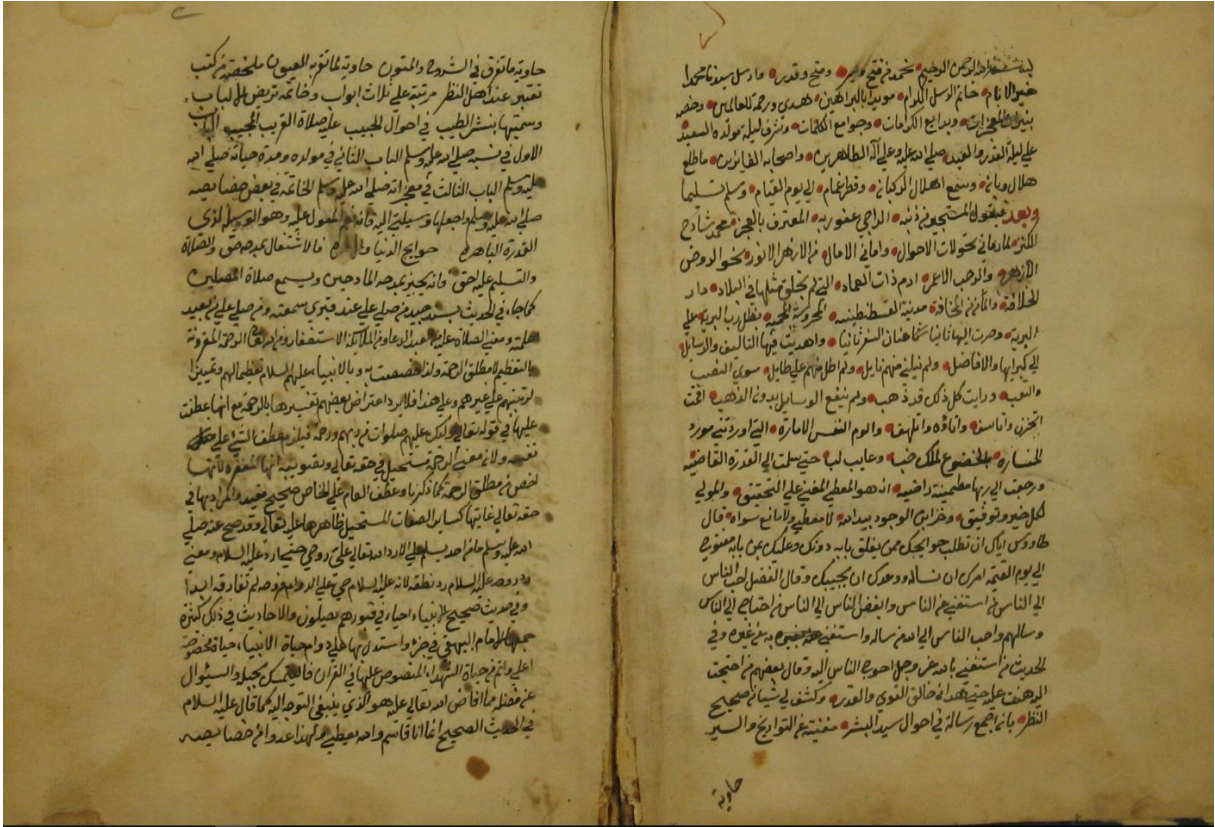 بسم الله الرحمن الرحيم نحمد من فتح ومنح وقدر وارسل سيدنا محمدا
خير الانام خاتم الرسل الكرام مويدا بالبراهين هدى ورحمة للعالمين وخصه
المعجزات وبدايع الكرامات وجوامع الكلمات وشرف ليلة مولده السعيد
على ليلة القدر والعيد صلى الله عليه وعلى آله الطاهرين واصحابه الفايزين ما طلع
هلال وبان وسمع اهلال الركبان وقطر غمام الى يوم القيام وسلم تسليما
وبعد فيقول المستجير من ذنبه الراجي عفو ربه المعترف بالعجز محمد شارح
الكنز لما رماني تحولات الاحوال واماني الامال من الازهر الانور نحو الروض
الازهر والرحب الاعمر ارم ذات العماد التي لم يخلق مثلها في البلاد دار
الخلافة والمأمن من المخافة مدينة القسطنطينيه المحروسة المحميه بظل رب البريه على
البريه وصرت اليها ثانيا عنان السفر ثانيا واهديت فيها التاليف والرسايل
الى كبرايها والافاضل ولم نيلني منهم نايل ولم اطل منهم على طايل سوى النصب
والتعب ورايت كل ذلك قد ذهب ولم ينفع الوسايل بدون الذهب اقمت
اتحزن واتاسف واتاوه واتلهف والوم النفس الامارة التي اوردتني مورد
الخسارة بالخضوع لملك ضبا وعايب لبا حتى سلمت الى القدرة القاضيه
ورجعت الى ربها مطمينة راضيه انه هو المعطي المغني على التحقيق والمولي
لكل خير وتوفيق وخزاين الوجود بيد الله لا معطي ولا مانع سواه قال
طاووس اياك ان تطلب حوايجك ممن يغلق بابه دونك وعليك بمن بابه مفتوح
الى يوم القيمة امرك ان تساله ووعدك ان يجيبك وقال الفضل احب الناس
الى الناس من استغنى عن الناس وابغض الناس الى الناس من احتاج الى الناس
وسالهم واحب الناس الى الله من ساله واستغنى به عن غيره وفي
الحديث من استغنى بالله عز وجل احوج الناس اليه وقال بعضهم من احتجت
اليه هنت عليه حتى هداني خالق القوى والقدر وكشف لي شيا من صحيح
النظر باني اجمع رسالة في احوال سيد البشر مغنية عن التواريخ والسير
حاوية
حاوية ما تفرق في الشروح والمتون حاوية لما تقر به العيون ملخصة من كتب
تعتبر عند اهل النظر مرتبة على ثلاث ابواب وخاتمة تريض الالباب
وسميتها بنشر الطيب في احوال الحبيب عليه صلاة القريب المجيب الباب
الاول في نسبه صلى الله عليه وسلم الباب الثاني في مولده ومدة حياته صلى الله
عليه وسلم الباب الثالث في معجزاته صلى الله عليه وسلم الخاتمة في بعض خصايصه
صلى الله عليه وسلم واجعلها وسيلتي اليه فانه نعم المعول عليه وهو الوسيلة لذى
القدرة الباهره حوايج الدنيا والاخره فالاشتغال بمدحه حق والصلاة
والتسليم عليه احق وانه يجيز بمدحه المادحين ويسمع صلاة المصلين
كما جاء في الحديث بسند جيد من صلى علي عند قبري سمعته ومن صلى علي من بعيد
علمته ومعنى الصلاة عليه من العبد الدعاء ومن الملايكة الاستغفار ومن الله تعالى الرحمة المقرونة
بالتعظيم لا مطلق الرحمة ولذا خصصت به وبالانبياء عليهم السلام تعظيما لهم وتمييزا
لمرتبتهم على غيرهم وعلى هذا فلا يرد اعتراض بعضهم تفسيرها بالرحمة مع انها عطفت
عليها في قوله تعالى اوليك عليهم صلوات من ربهم ورحمة فيلزم عطف الشيء على
نفسه ولان معنى الرحمة مستحيل في حقه تعالى وبقوى انها المغفرة لانها
اخص من مطلق الرحمة كما ذكرنا وعطف العام على الخاص صحيح مفيد والمراد بها في
حقه تعالى غايتها كساير الصفات المستحيل ظاهرها عليه تعالى وقد صح عنه صلى
الله عليه وسلم ما من احد يسلم علي الا رد الله تعالى علي روحي حتى ارد عليه السلام ومعنى
رد روحه عليه السلام رد نطقه لانه عليه السلام حي على الدوام وروحه لم تفارقه ابدا
وفي حديث صحيح الانبياء احياء في قبورهم يصلون والاحاديث في ذلك كثيرة
جمعها الامام البيهقي في جزء واستدل بها على دوام حياة الانبياء حياة مخصوصة
اعلى واتم من حياة الشهداء المنصوص عليها في القران فالتمسك بحبله والسؤال
من فضله مما افاض الله تعالى عليه هو الذي ينبغي التوجه اليه كما قال عليه السلام
في الحديث الصحيح انما انا قاسم والله يعطي ولهذا عدوا من خصايصه